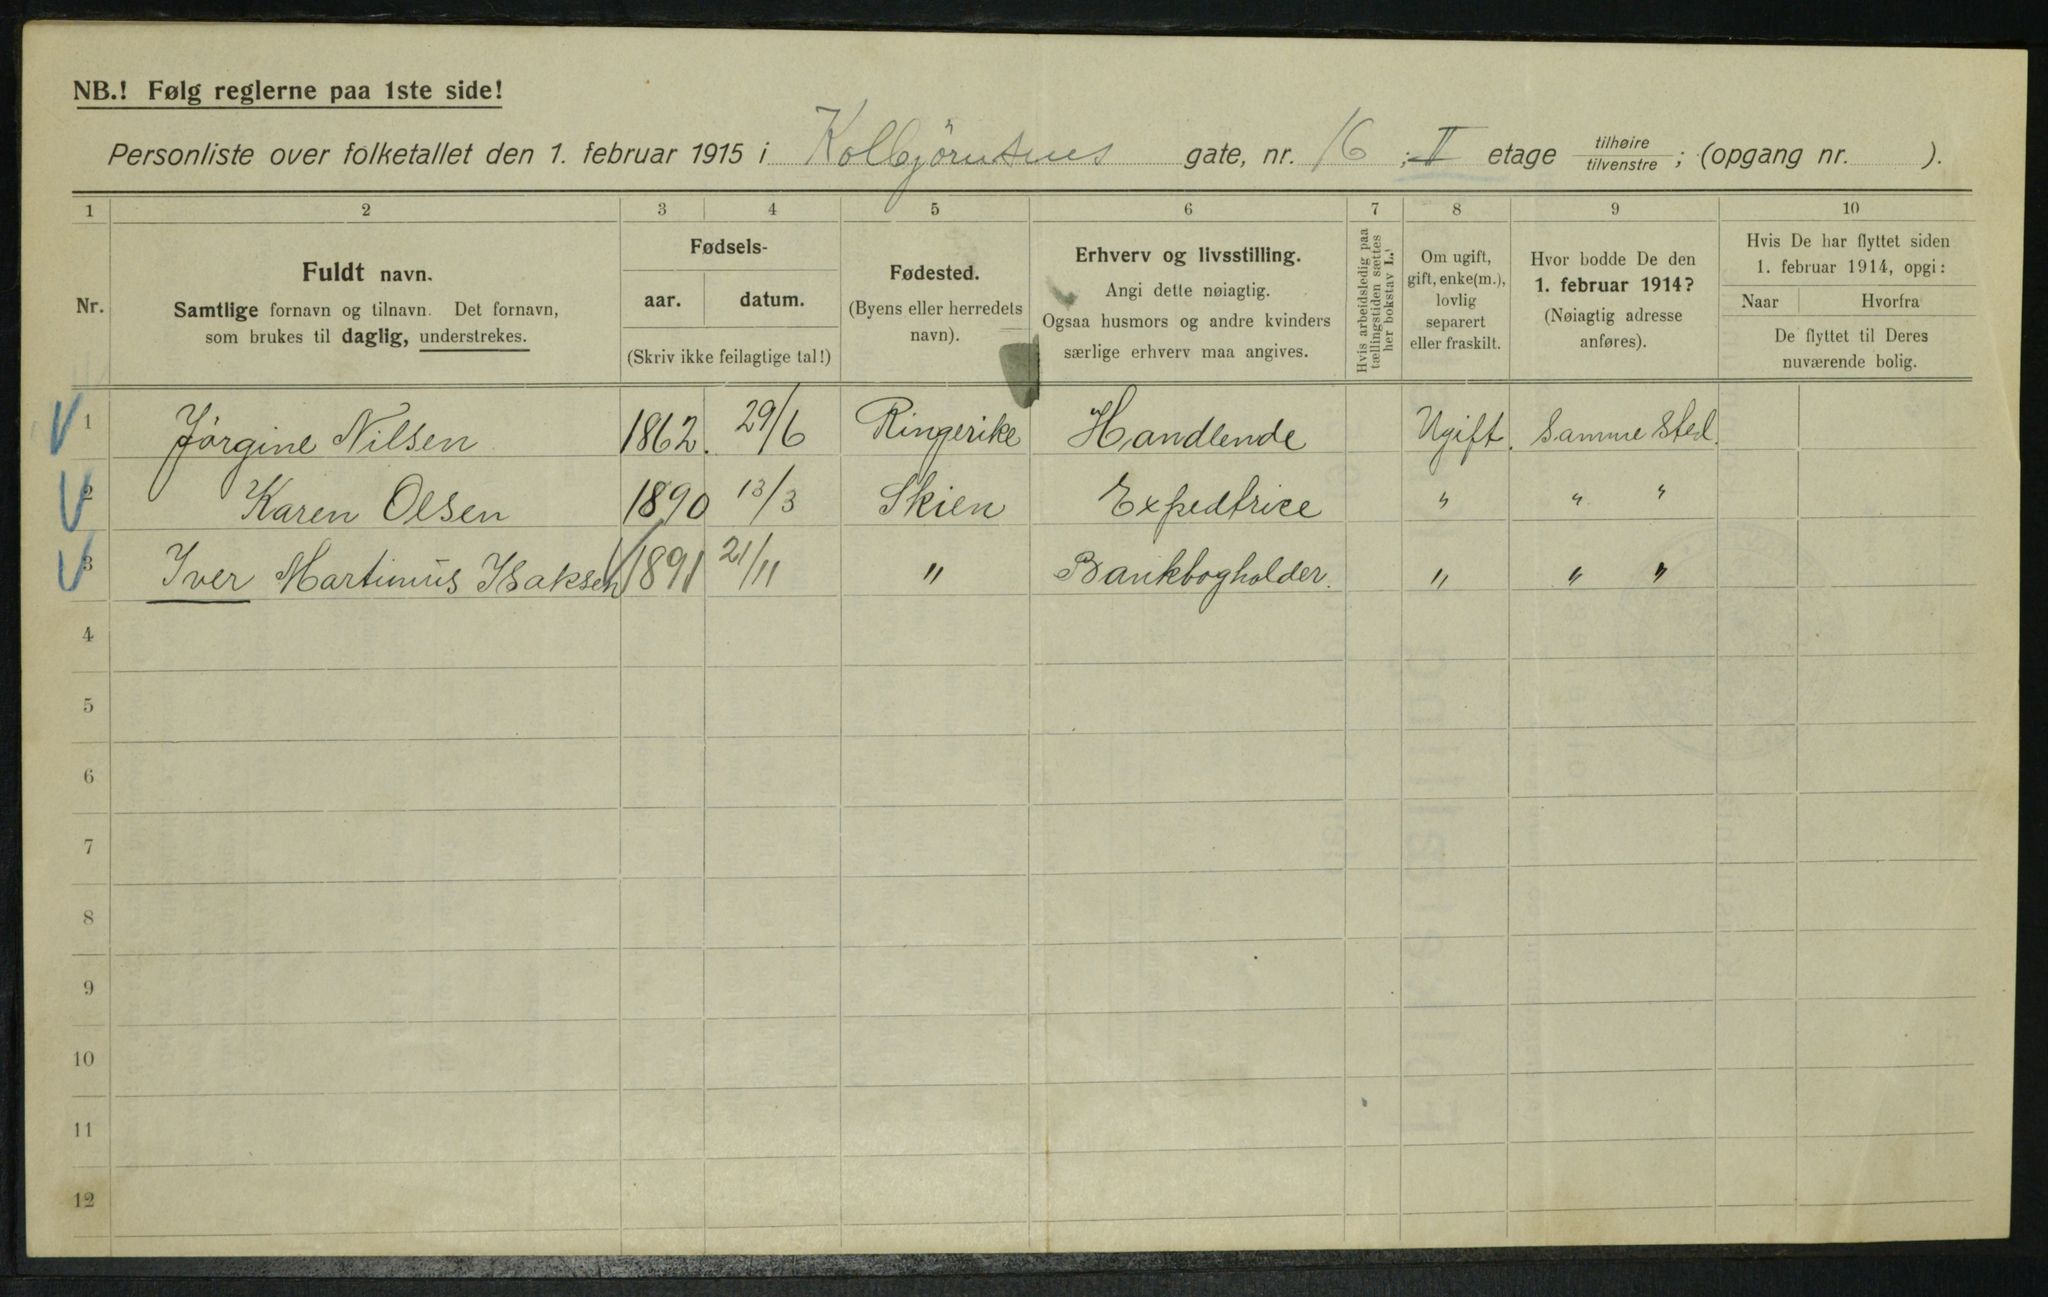 NB.! Følg reglerne paa 1ste side!
Personliste over folketallet den 1. februar 1915 i Kolbjörnsens gate, nr. 16; II etage tilhøire/tilvenstre; (opgang nr. ).
1 2 3 4 5 6 7 8 9 10
Nr.
Fuldt navn.
Samtlige fornavn og tilnavn. Det fornavn,
som brukes til daglig, understrekes.
Fødsels-
aar. datum.
(Skriv ikke feilagtige tal!)
Fødested.
(Byens eller herredets
navn).
Erhverv og livsstilling.
Angi dette nøiagtig.
Ogsaa husmors og andre kvinders
særlige erhverv maa angives.
Hvis arbeidsledig paa
tællingstiden sættes
her bokstav L.
Om ugift,
gift, enke(m.),
lovlig
separert
eller fraskilt.
Hvor bodde De den
1. februar 1914?
(Nøiagtig adresse
anføres).
Hvis De har flyttet siden
1. februar 1914, opgi:
Naar Hvorfra
De flyttet til Deres
nuværende bolig.
1 Jørgine Nilsen 1862. 29/6 Ringerike Handlende Ugift. Samme Sted.
2 Karen Olsen 1890 13/3 Skien Expedtrice " " "
3 Iver Martinius Isaksen 1891 21/11 " Bankbogholder. " " "
4
5
6
7
8
9
10
11
12